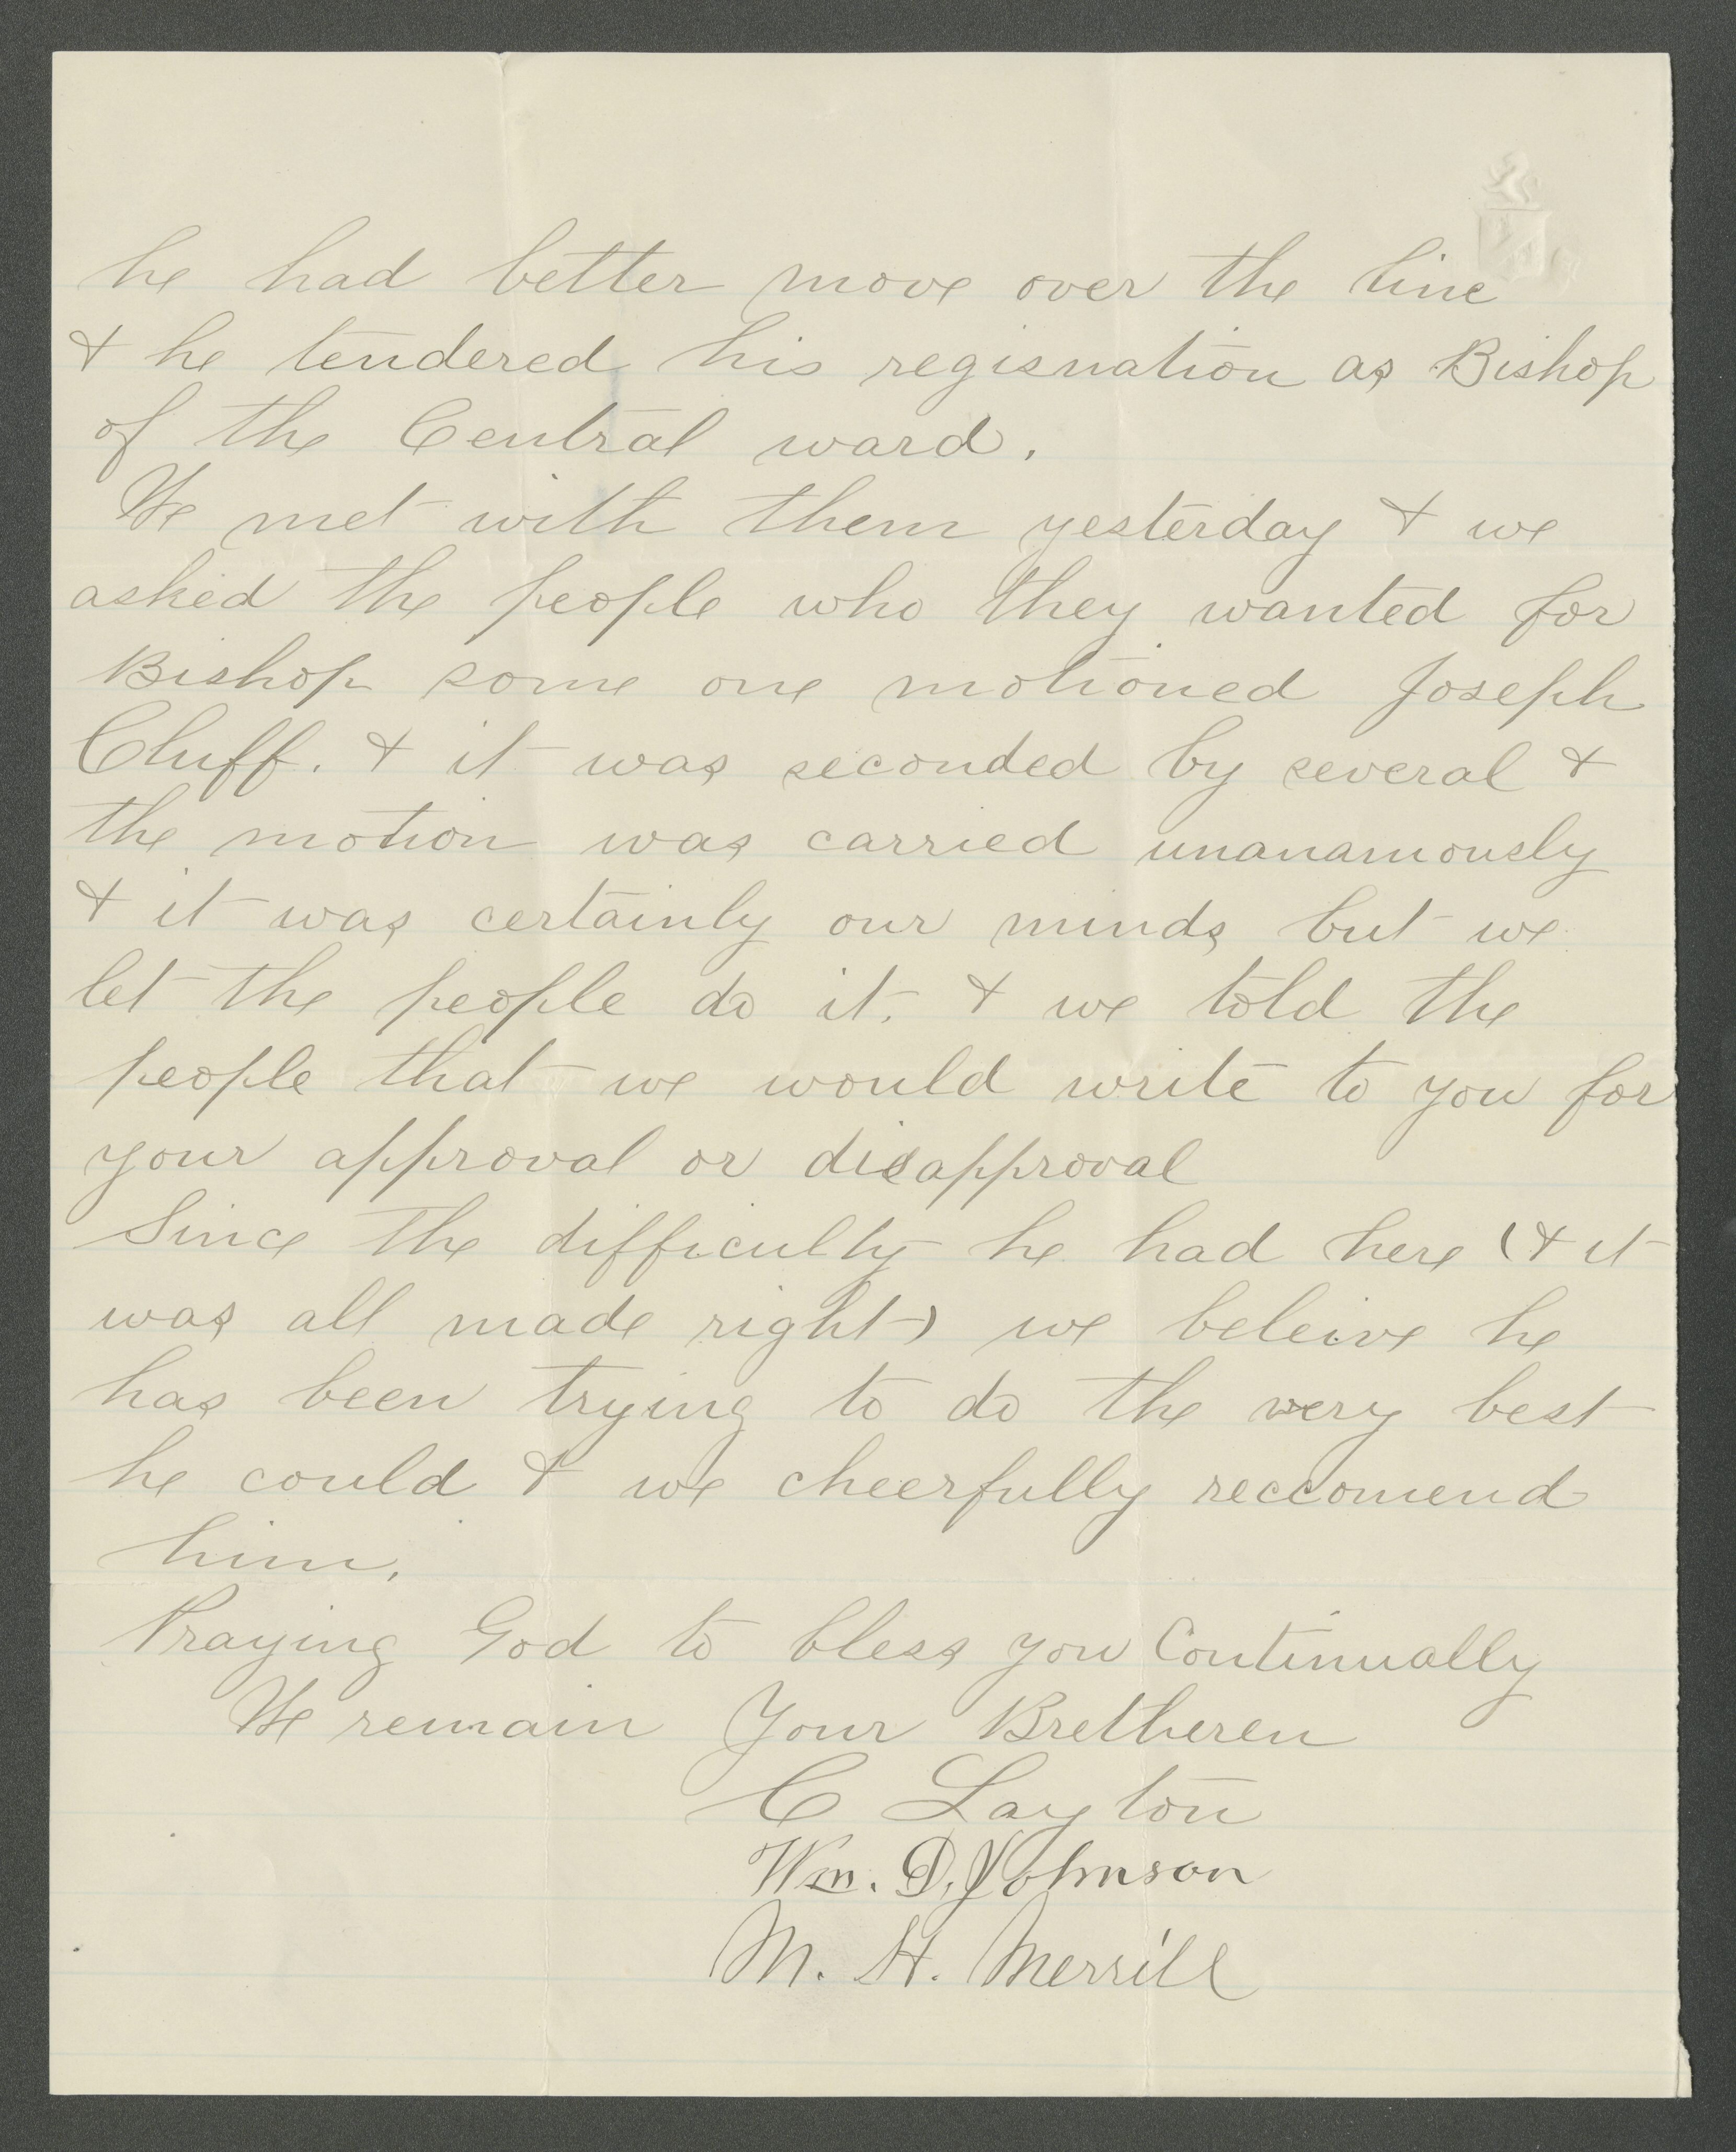 he had better move over the line
& he tendered his regisnation as Bishop
of the Central ward.
We met with them yesterday & we
asked the people who they wanted for
Bishop some one motioned Joseph
Cluff. & it was seconded by several &
the motion was carried unanamously
& it was certainly our minds but we
let the people do it. & we told the
people that we would write to you for
your approval or disapproval
Since the difficulty he had here (& it
was all made right) we beleive he
has been trying to do the very best
he could & we cheerfully reccomend
him.
Praying God to bless you Continually
We remain Your Bretheren
C Layton
Wm. D. Johnson
M. H. Merrill